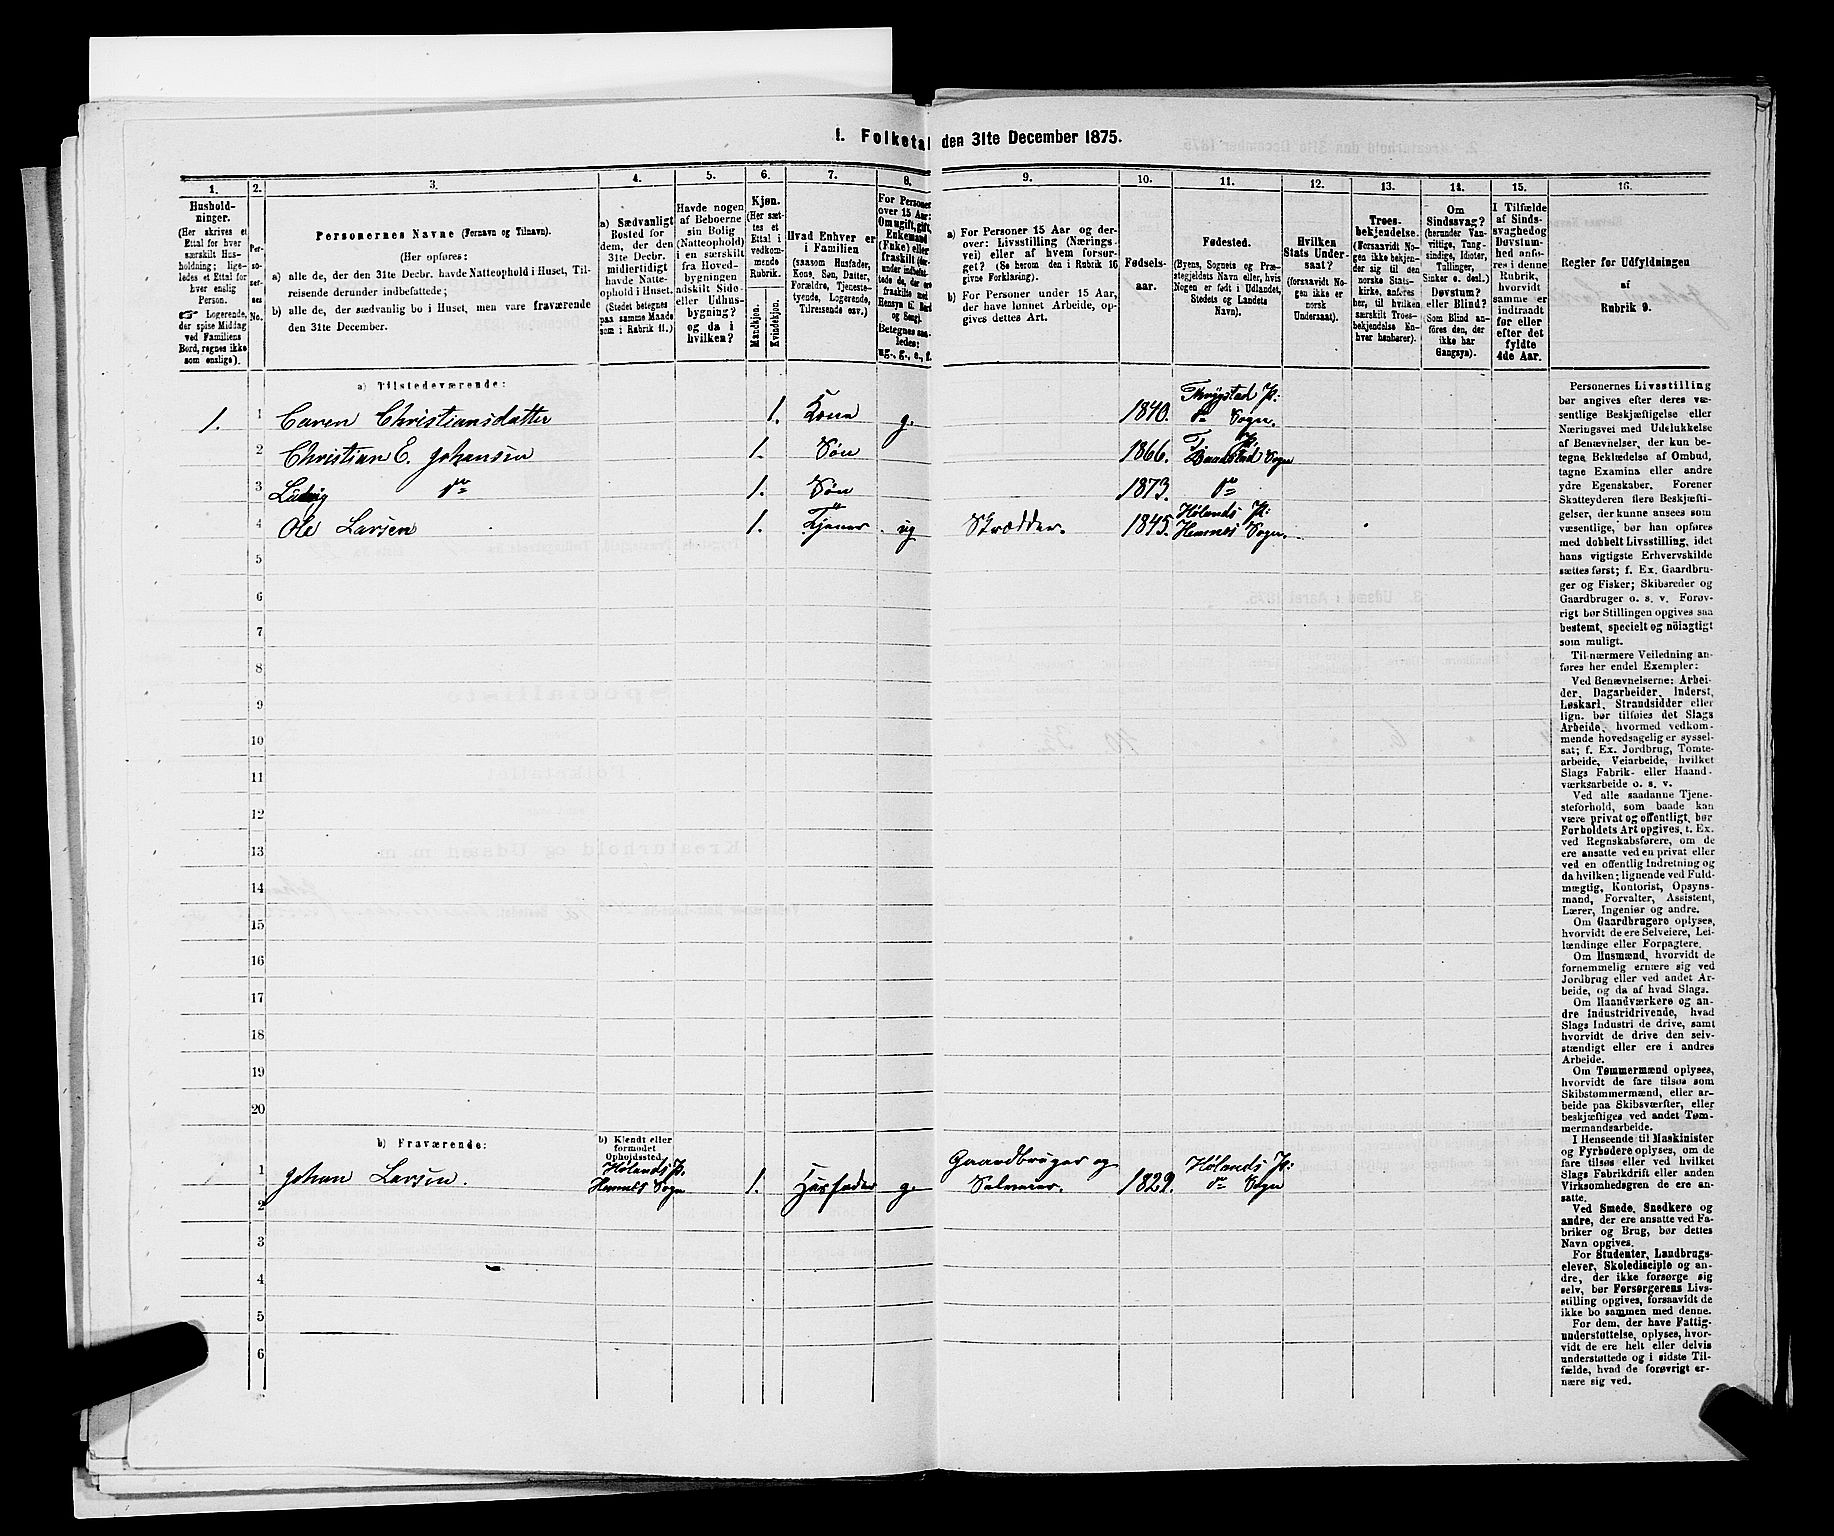 1. Folketal den 31te December 1875.
1.
2.
3.
4.
5.
6.
7.
8.
9.
10.
11.
12.
13.
14.
15.
16.
Hushold-
ninger.
(Her skrives et
Ettal for hver
særskilt Hus-
holdning; lige-
ledes et Ettal for
hver enslig
Person.
☞ Logerende,
der spise Middag
ved Familiens
Bord, regnes ikke
som enslige).
Per-
so-
ner-
nes
No.
Personernes Navne (Fornavn og Tilnavn).
(Her opføres:
a) alle de, der den 31te Decbr. havde Natteophold i Huset, Til-
reisende derunder indbefattede;
b) alle de, der sædvanlig bo i Huset, men vare fraværende
den 31te December.
a) Sædvanligt
Bosted for
dem, der den
31te Decbr.
midlertidigt
havde Natte-
ophold i Huset.
(Stedet betegnes
paa samme Maade
som i Rubrik 11.)
Havde nogen
af Beboerne
sin Bolig
(Natteophold)
i en særskilt
fra Hoved-
bygningen
adskilt Side-
eller Udhus-
bygning?
og da i
hvilken?
Kjøn.
(Her sæt-
tes et
Ettal i
vedkom-
mende
Rubrik.
Mandkjøn.
Kvindekjøn.
Hvad Enhver er
i Familien
(saasom Husfader,
Kone, Søn, Datter,
Forældre, Tjeneste-
tyende, Logerende,
Tilreisende osv.)
For Personer
over 15 Aar:
Om ugift, gift,
Enkemand
(Enke) eller
fraskilt
Betegnes saa-
ledes:
ug., g., e., f.
a) For Personer 15 Aar og der-
over: Livsstilling (Nærings-
vei) eller af hvem forsør-
get? (Se herom den i Rubrik 16
givne Forklaring).
b) For Personer under 15 Aar,
der have lønnet Arbeide, op-
gives dettes Art.
Fødsels-
aar.
Fødested.
(Byens, Sognets og Præ-
stegjeldets Navn eller, hvis
Nogen er født i Udlandet,
Stedets og Landets
Navn).
Hvilken
Stats Under-
saat?
(forsaavidt No-
gen ikke er
norsk
Undersaat).
Troes-
bekjendelse.
(Forsaavidt No-
gen ikke bekjen-
der sig til den
norske Stats-
kirke, anføres
her, til hvilken
særskilt Troes-
bekjendelse En-
hver henhører).
Om
Sindssvag?
(herunder Van-
vittige, Tung-
sindige, Idioter,
Tullinger,
Sinker o. desl.)
Døvstum?
eller Blind?
(Som Blind an-
føres den, der
ikke har
Gangsyn).
I Tilfælde
af Sinds-
svaghed og
Døvstum-
hed anfø-
res i denne
Rubrik,
hvorvidt
samme er
indtraadt
før eller
efter det
fyldte
4de Aar.
Regler for Udfyldningen
af
Rubrik 9.
a) Tilstedeværende:
1. 1 Caren Christiansdatter 1. Kone g. 1840. Thrygstad P: do Sogn.
2 Christian E. Johansen 1. Søn 1866. Baastad Sogn
3 Ludvig do 1. Søn 1873. do
4 Ole Larsen 1. Tjener ug Skrædder. 1845. Hølands P: Hemnes Sogn.
5
6
7
8
9
10
11
12
13
14
15
16
17
18
19
20
b) Fraværende:
b) Kjendt eller
formodet
Opholdssted.
1 Johan Larsen. Hølands P. Hemnes Sogn 1. Husfader g. Gaardbruger og Selveier. 1829. Hølands P: do Sogn
2
3
4
5
6
Personernes Livsstilling
bør angives efter deres væ-
sentlige Beskjæftigelse eller
Næringsvei med Udelukkelse
af Benævnelser, der kun be-
tegne Beklædelse af Ombud,
tagne Examina eller andre
ydre Egenskaber. Forener
Skatteyderen flere Beskjæfti-
gelser, der kunne ansees som
væsentlige, bør han opføres
med dobbelt Livsstilling, idet
hans vigtigste Erhvervskilde
sættes først; f. Ex. Gaardbru-
ger og Fisker; Skibsreder og
Gaardbruger o. s. v. Forøv-
rigt bør Stillingen opgives saa
bestemt, specielt og nöiagtigt
som muligt.
Til nærmere Veiledning an-
føres her endel Exempler:
Ved Benævnelserne: Arbei-
der, Dagarbeider, Inderst,
Løskarl, Strandsidder eller
lign. bør tilføies det Slags
Arbeide, hvormed vedkom-
mende hovedsagelig er syssel-
sat; f. Ex. Jordbrug, Tomte-
arbeide, Veiarbeide, hvilket
Slags Fabrik- eller Haand-
værksarbeide o. s. v.
Ved alle saadanne Tjene-
steforhold, som baade kan
være privat og offentligt, bør
Forholdets Art opgives, t. Ex.
ved Regnskabsførere, om de
ere ansatte ved en privat eller
ved en offentlig Indretning og
da hvilken; lignende ved Fuld-
mægtig, Kontorist, Opsyns-
mand, Forvalter, Assistent,
Lærer, Ingeniør og andre.
Om Gaardbrugere oplyses,
hvorvidt de ere Selveiere, Lei-
lændinge eller Forpagtere.
Om Husmænd, hvorvidt de
fornemmelig ernære sig ved
Jordbrug eller ved andet Ar-
beide, og da af hvad Slags.
Om Haandværkere og an-
dre Industridrivende, hvad
Slags Industri de drive, samt
hvorvidt de drive den selv-
stændigt eller ere i andres
Arbeide.
Om Tømmermænd oplyses,
hvorvidt de fare tilsøs som
Skibstømmermænd, eller ar-
beide paa Skibsværfter, eller
beskjæftiges ved andet Tøm-
mermandsarbeide.
I Henseende til Maskinister
og Fyrbødere oplyses, om de
fare tilsøs eller ved hvilket
Slags Fabrikdrift eller anden
Virksomhedsgren de ere an-
satte.
Ved Smede, Snedkere og
andre, der ere ansatte ved Fa-
briker og Brug, bør dettes
Navn opgives.
For Studenter, Landbrugs-
elever, Skoledisciple og an-
dre, der ikke forsørge sig
selv, bør Forsørgerens Livs-
stilling opgives, forsaavidt de
ikke bo sammen med denne.
For dem, der have Fattig-
understøttelse, oplyses, hvor-
vidt de ere helt eller delvis
understøttede og i sidste Til-
fælde, hvad de forøvrigt er-
nære sig ved.